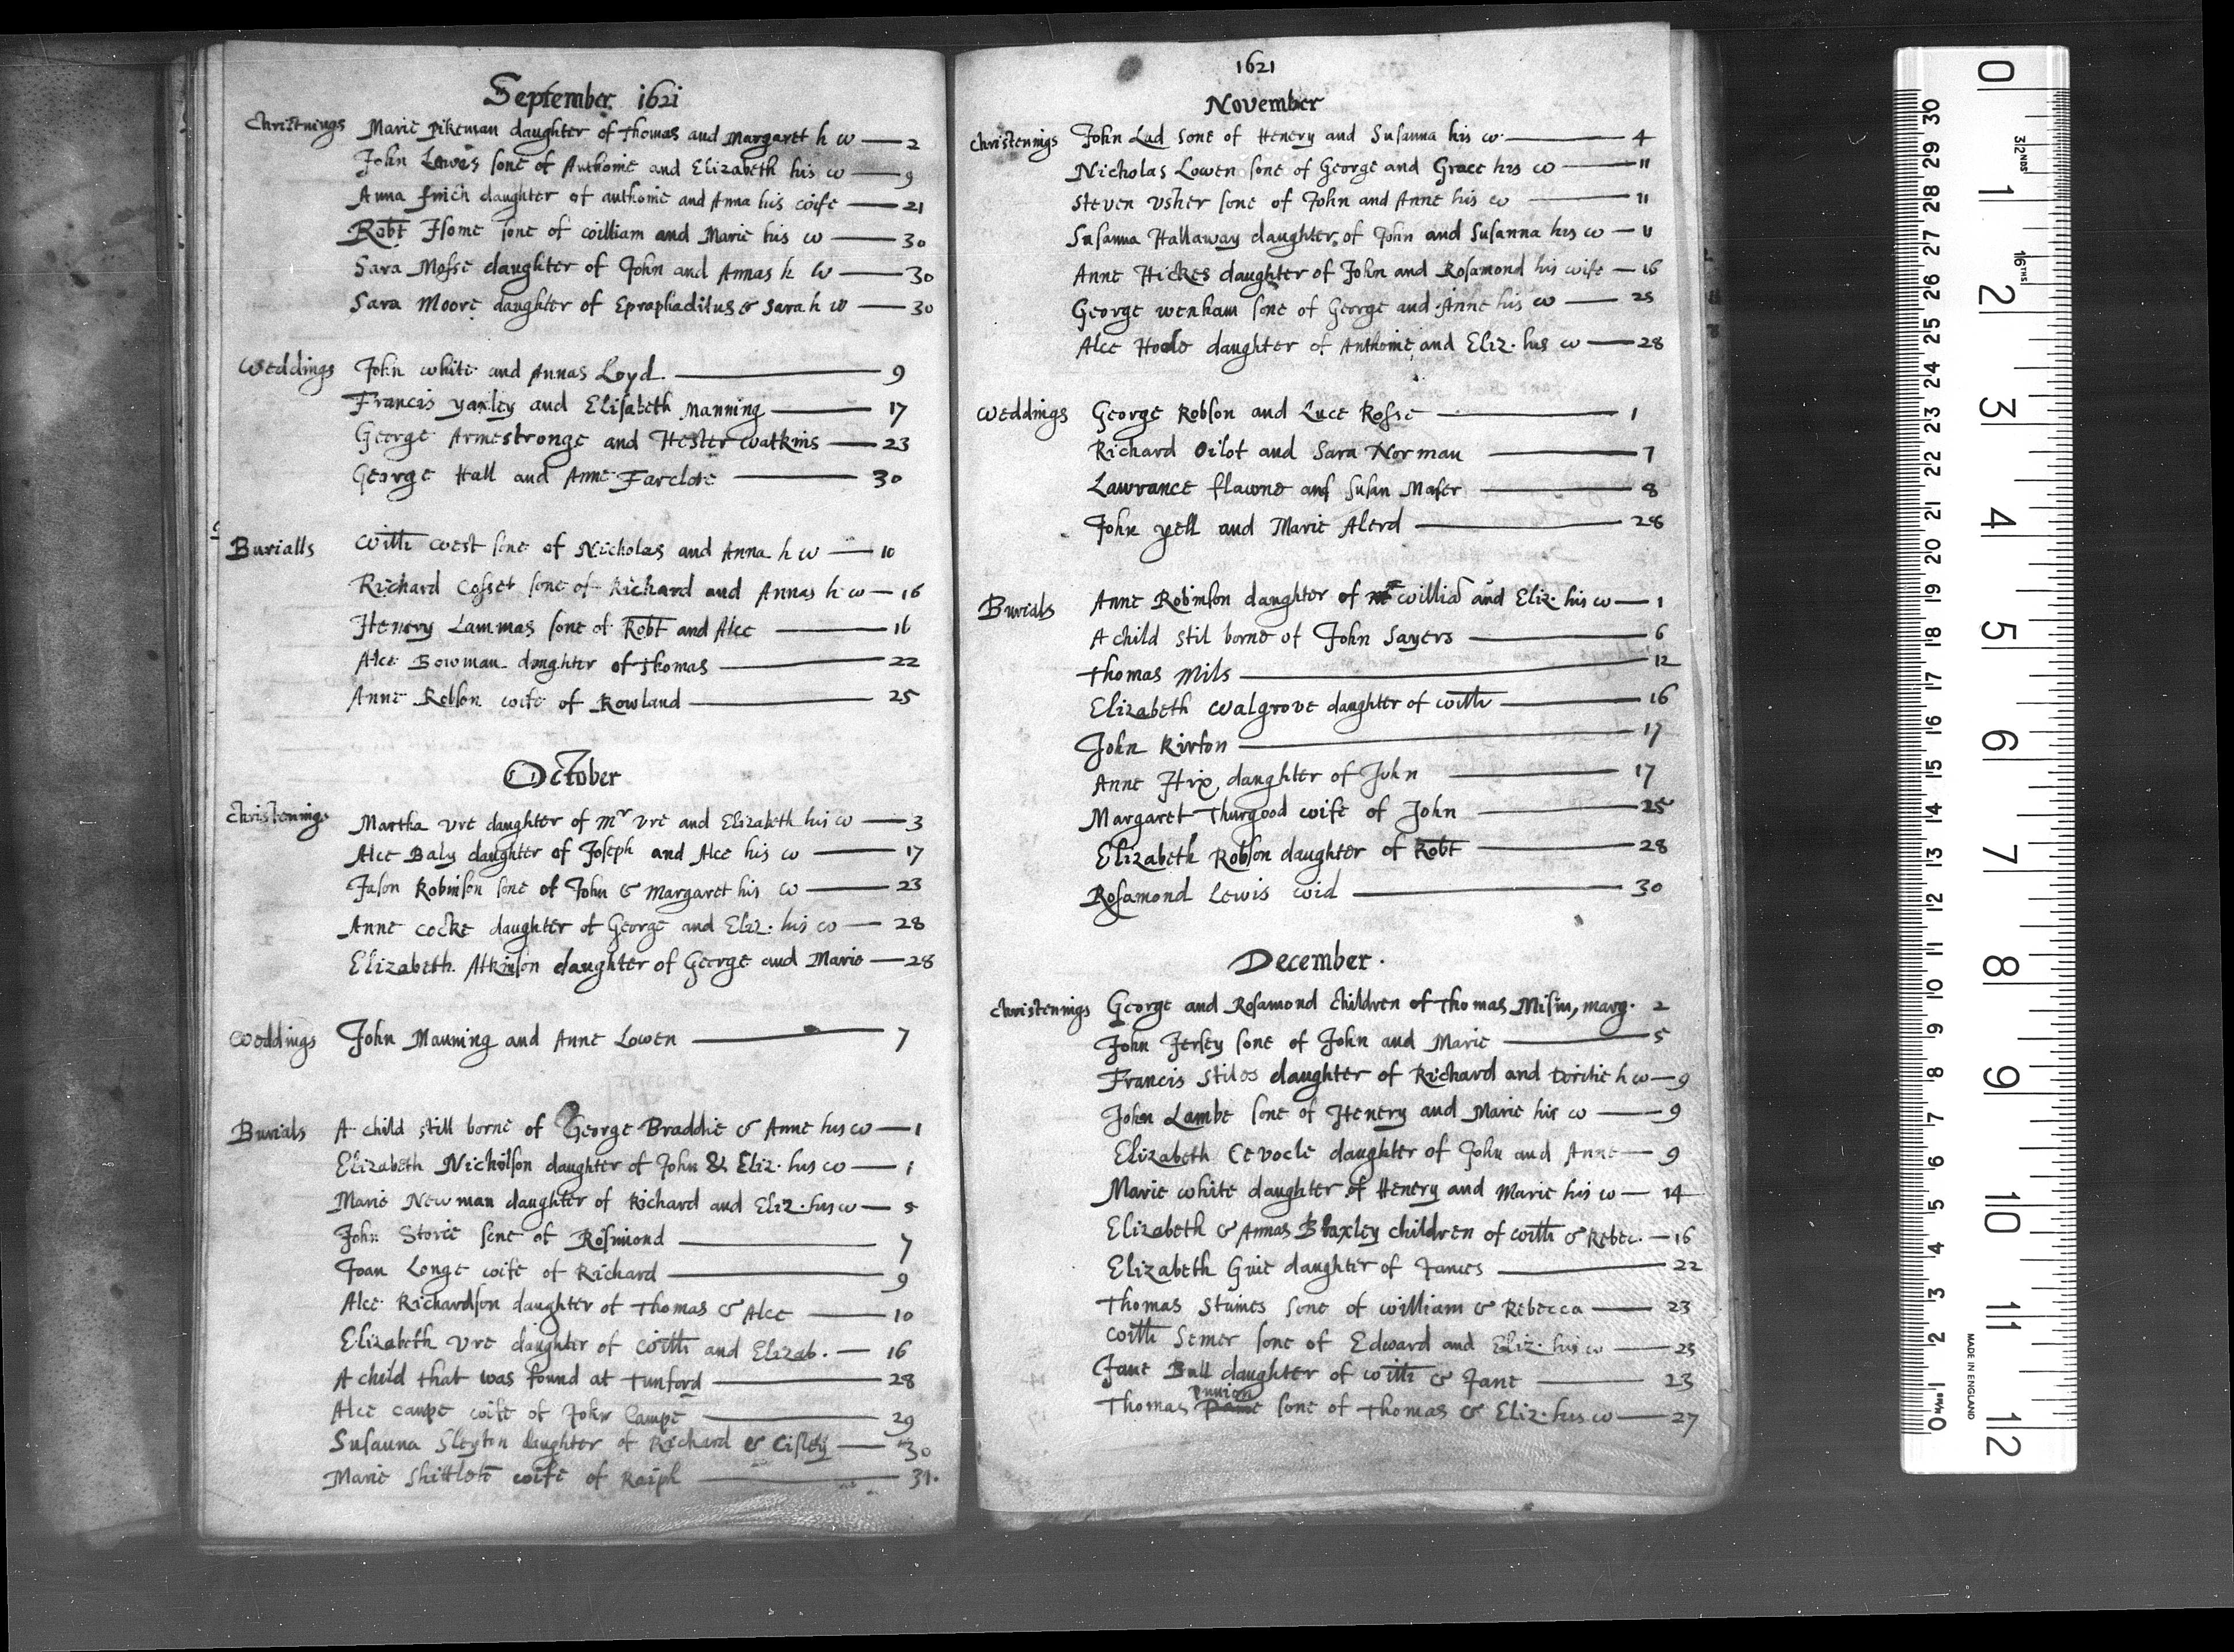 September 1621
Christnings Marie Pikeman daughter of Thomas and Margaret h w — 2
John Lewis sone of Anthonie and Elizabeth his w — 9
Anna daughter of anthonie and Anna his wife — 21
Robt Home sone of william and Marie his w — 30
Sara Mosse daughter of John and Annas h w — 30
Sara Moore daughter of Epraphaditus & Sara h w — 30
Weddings John white and Annas Loyd — 9
Francis yaxley and Elisabeth Manning — 17
George Armestronge and Hester watkins — 23
George Hall and Anne Farclote — 30
Burialls Willi west sone of Nicholas and Anna h w — 10
Richard Cosset sone of Richard and Annas h w — 16
Henery Lammas sone of Robt and Alce — 16
Alce Bowman daughter of Thomas — 22
Anne Robson wife of Rowland — 25
October
Christenings Martha vre daughter of mr vre and Elizabeth his w — 3
Alce Baly daughter of Joseph and Alce his w — 17
Jason Robinson sone of John & Margaret his w — 23
Anne Cocke daughter of George and Eliz. his w — 28
Elizabeth Atkinson daughter of George and Marie — 28
Weddings John Manning and Anne Lowen — 7
Burials A child still borne of George Braddie & Anne his w — 1
Elizabeth Nicholson daughter of John & Eliz. his w — 1
Marie Newman daughter of Richard and Eliz. his w — 5
John Storie sone of Rosimond — 7
Joan Longe wife of Richard — 9
Alce Richardson daughter of Thomas & Alce — 10
Elizabeth Vre daughter of Willi and Elizab. — 16
A child that was found at Tunford — 28
Alce Campe wife of John Campe — 29
Susanna Sleyton daughter of Richard & Cisley — 30
Marie Shittlete wife of Raiph — 31.
1621
November
Christenings John Lad sone of Henery and Susanna his w — 4
Nicholas Lowen sone of George and Grace his w — 11
Steven Vsher sone of John and Anne his w — 11
Susanna Hallaway daughter of John and Susanna his w — 11
Anne Hickes daughter of John and Rosamond his wife — 16
George wenham sone of George and Anne his w — 25
Alce daughter of Anthonie and Eliz. his w — 28
Weddings George Robson and Luce Rosse — 1
Richard Oilot and Sara Norman — 7
Lawrance flawne and Susan Maser — 8
John yell and Marie Alerd — 28
Burials Anne Robinson daughter of willia and Eliz. his w — 1
A child stil borne of John Sayers — 6
Thomas Mils — 12
Elizabeth Walgrove daughter of Willi — 16
John Kirton — 17
Anne Hix daughter of John — 17
Margaret Thurgood wife of John — 25
Elizabeth Robson daughter of Robt — 28
Rosamond Lewis wid — 30
December.
Christenings George and Rosamond children of Thomas marg. 2
John Jersey sone of John and Marie — 5
Francis Stilos daughter of Richard and Doritie h w — 9
John Lambe sone of Henery and Marie his w — 9
Elizabeth daughter of John and Anne — 9
Marie white daughter of Henery and Marie his w — 14
Elizabeth & Annas Blaxley children of Willi & Rebec. — 16
Elizabeth Grie daughter of James — 22
Thomas Stimes sone of william & Rebecca — 23
Willi Semer sone of Edward and Eliz. his w — 25
Jane Bull daughter of Willi & Jane — 23
Thomas sone of Thomas & Eliz. his w — 27
0 1 2 3 4 5 6 7 8 9 10 11 12
32NDS
16THS
30 29 28 27 26 25 24 23 22 21 20 19 18 17 16 15 14 13 12 11 10 9 8 7 6 5 4 3 2 1 0
MADE IN ENGLAND